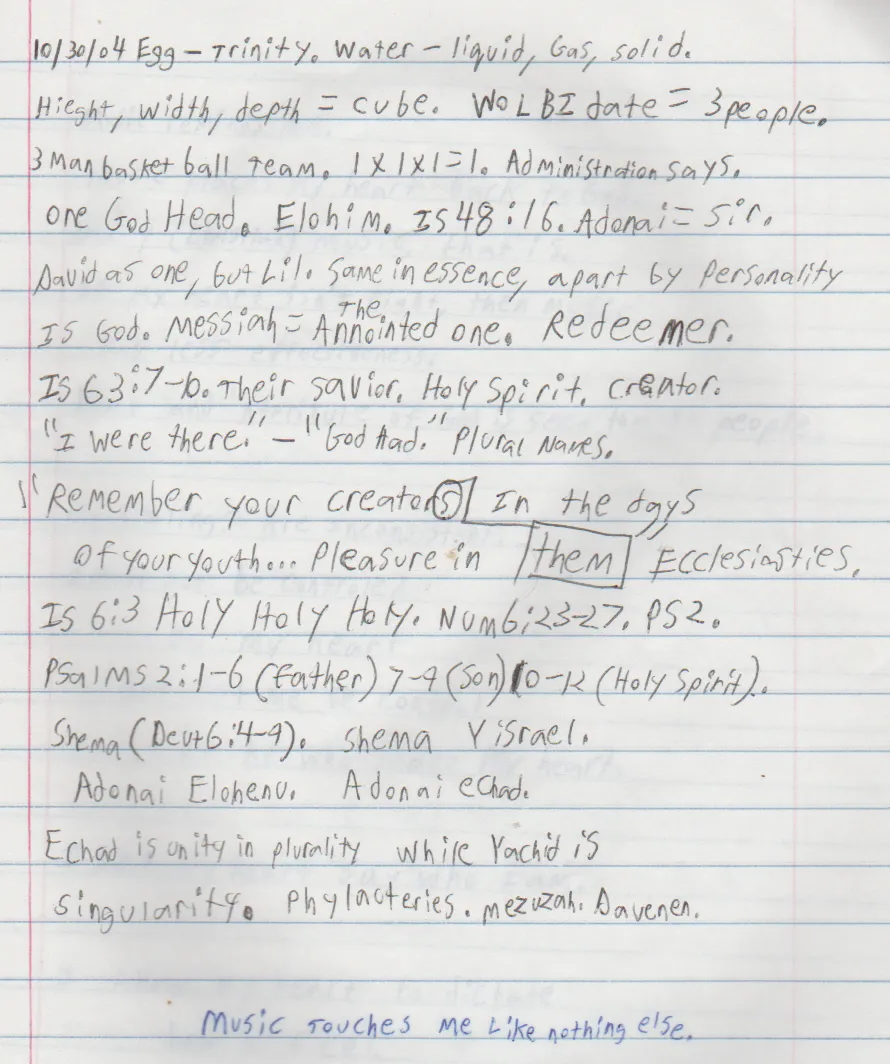 10/30/04 Egg – Trinity. Water – liquid, Gas, solid.
Hieght, width, depth = cube. WOLBI date = 3 people.
3 Man basket ball Team. 1 X 1 X 1 = 1. Administration says.
one God Head. Elohim. IS 48:16. Adonai = Sir.
David as one, but Lil. Same in essence, apart by Personality
The
IS God. Messiah = Annointed one. Redeemer.
IS 63:7-10. Their savior. Holy Spirit. Creator.
"I were there." – "God Had." Plural Names.
"Remember your creators In the days
Of your youth... Pleasure in them" Ecclesiasties.
IS 6:3 Holy Holy Holy. Num 6:23-27. PS 2.
PSalms 2:1-6 (Father) 7-9 (Son) 10-12 (Holy Spirit).
Shema (Deut 6:4-9). Shema Yisrael.
Adonai Elohenu. Adonai echad.
Echad is unity in plurality while Yachid is
singularity. Phylacteries. mezuzah. Davenen.
Music Touches Me Like nothing else.